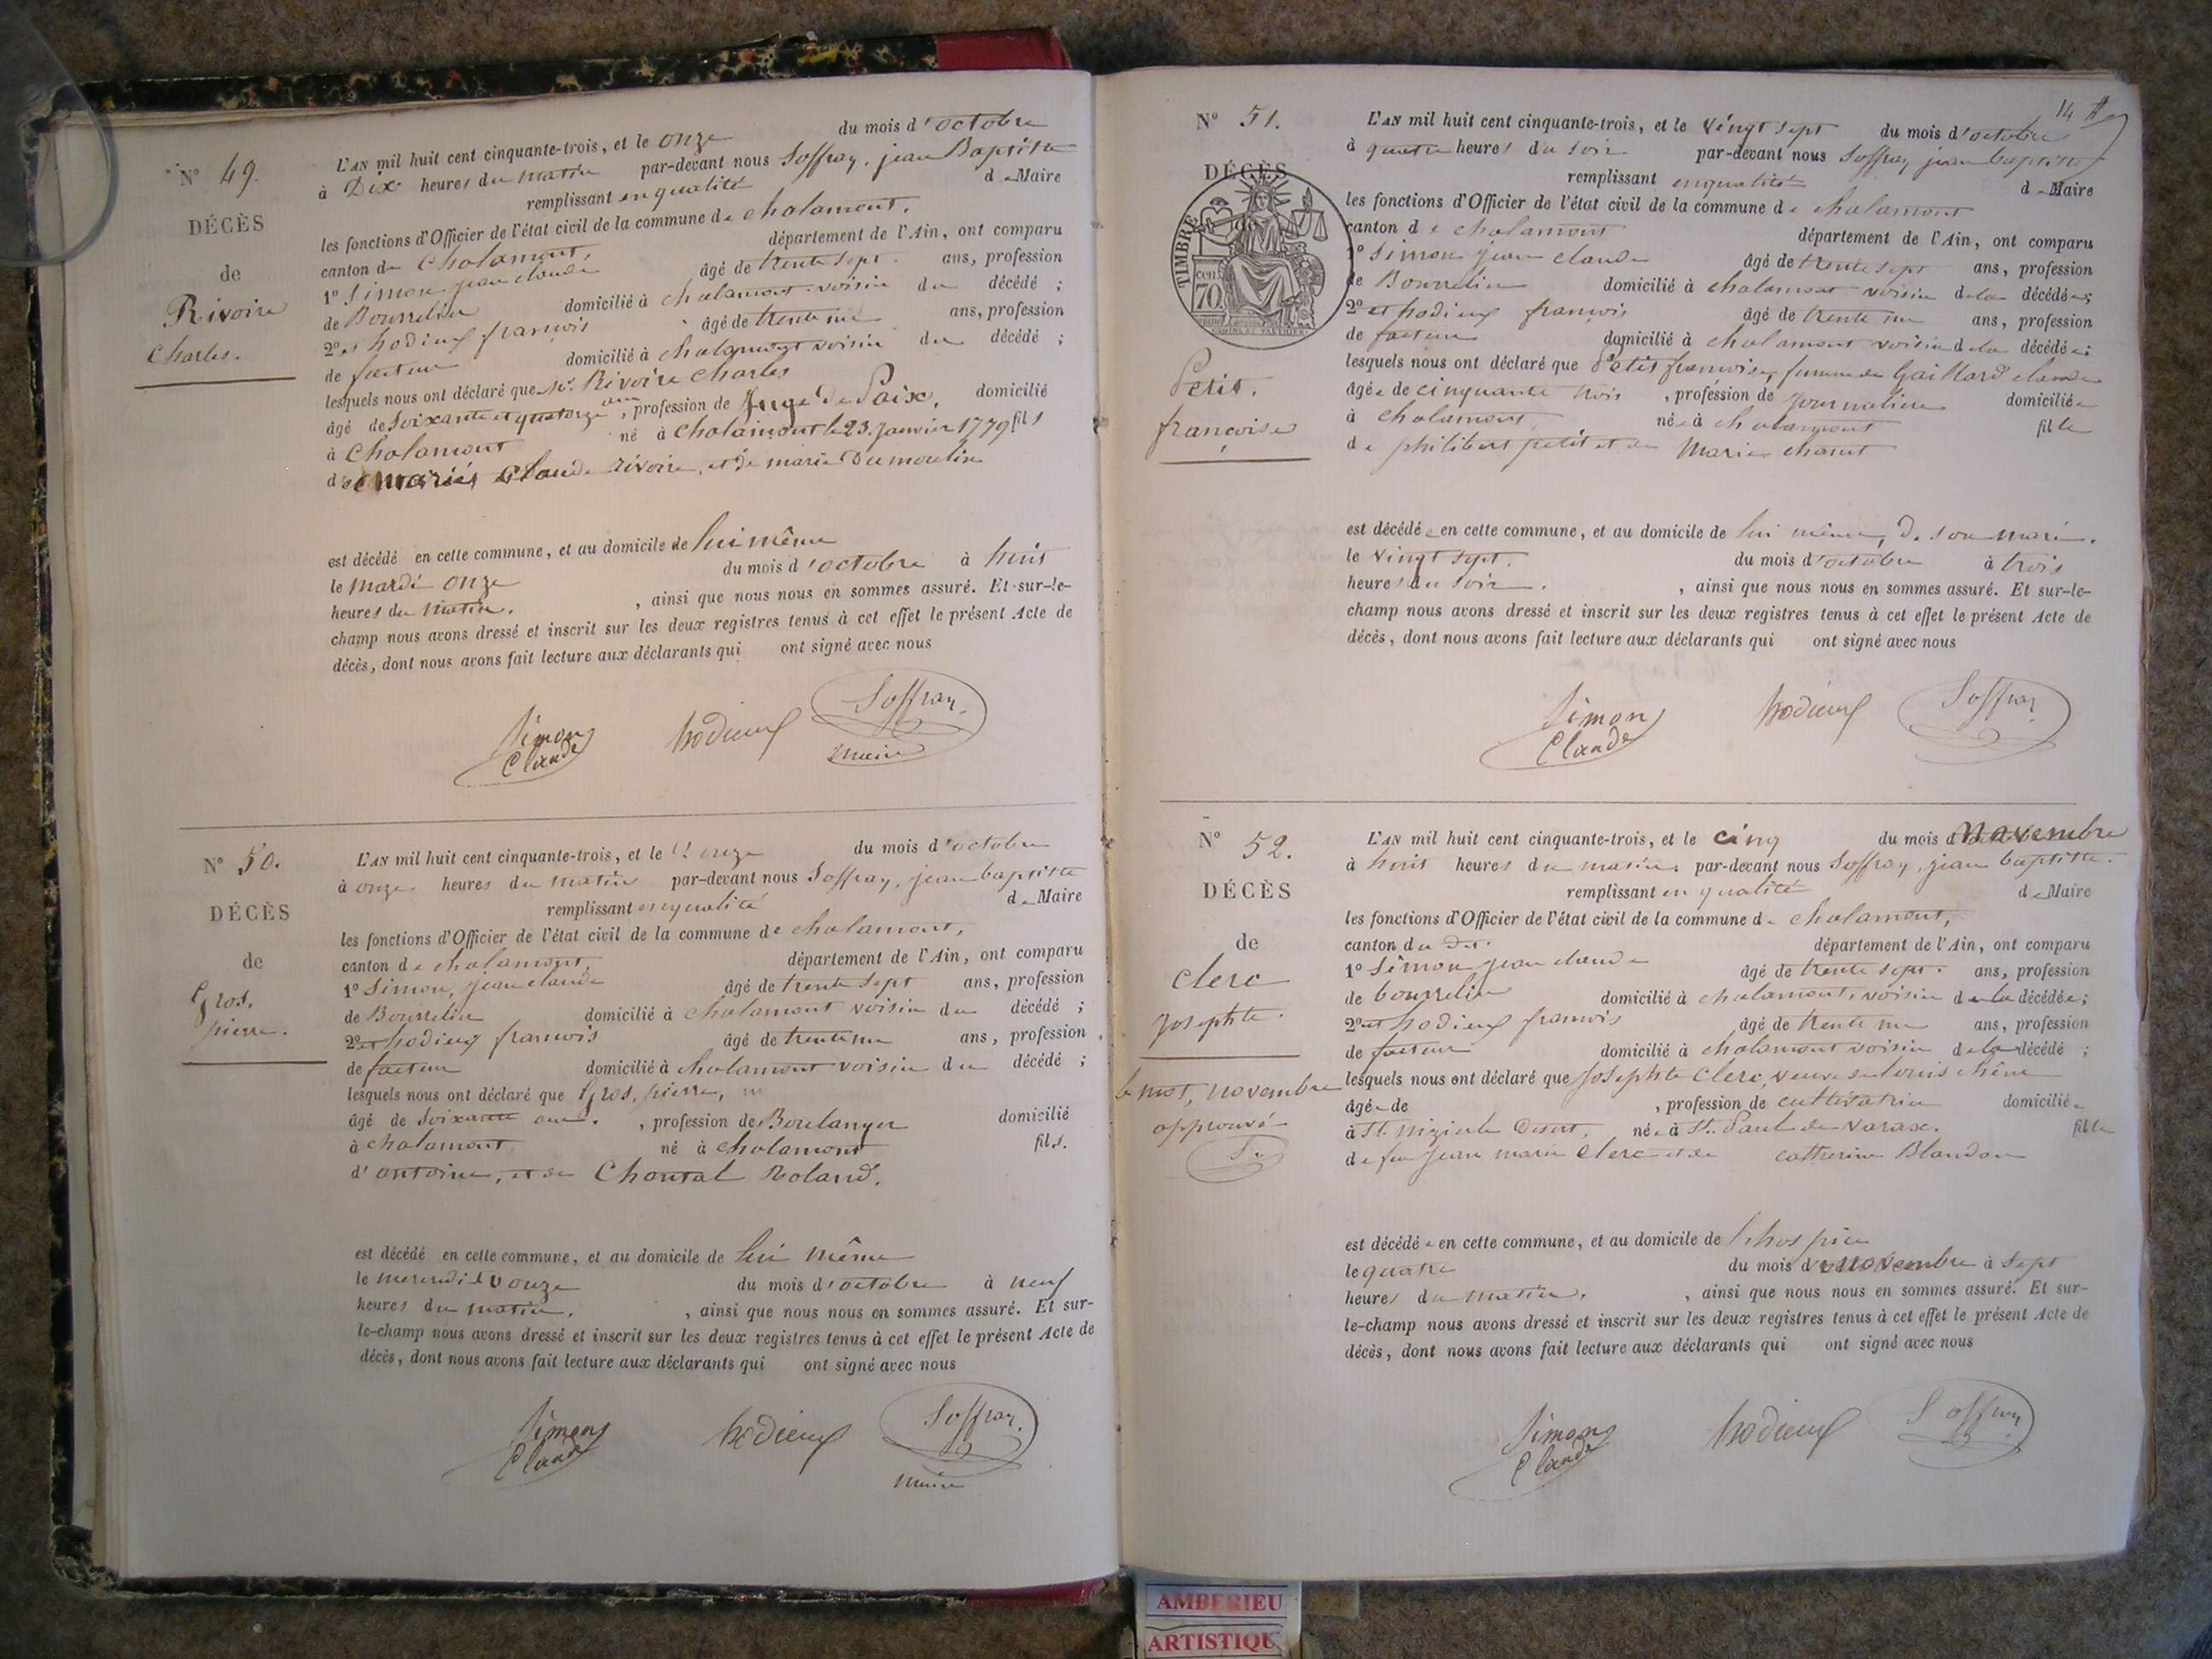 N° 49.
DÉCÈS
de
Rivoire
Charles.
L'AN mil huit cent cinquante-trois, et le onze du mois d'octobre
à Dix heures du matin par-devant nous Soffray, jean Baptiste
remplissant en qualité de Maire
les fonctions d'Officier de l'état civil de la commune de chalamont.
canton de Chalamont, département de l'Ain, ont comparu
1° Simon jean claude âgé de trente sept. ans, profession
de Bourrelier domicilié à chalamont voisin du décédé ;
2° et hodieux françois âgé de trente un ans, profession
de facteur domicilié à chalamont voisin du décédé ;
lesquels nous ont déclaré que Mr. Rivoire Charles
âgé de soixante et quatorze ans, profession de Juge de Paix, domicilié
à Chalamont né à Chalamont le 23. Janvier 1779 fils
des mariés Claude rivoire, et de marie Dumoulin
est décédé en cette commune, et au domicile de lui même
le mardi onze du mois d'octobre à huit
heures du matin. , ainsi que nous nous en sommes assuré. Et sur-le-
champ nous avons dressé et inscrit sur les deux registres tenus à cet effet le présent Acte de
décès, dont nous avons fait lecture aux déclarants qui ont signé avec nous
Simon
Claude
hodieux
Soffray
maire
N° 50.
DÉCÈS
de
Gros.
pierre.
L'AN mil huit cent cinquante-trois, et le onze du mois d'octobre
à onze heures du matin par-devant nous Soffray, jean baptiste
remplissant en qualité de Maire
les fonctions d'Officier de l'état civil de la commune de chalamont,
canton de chalamont, département de l'Ain, ont comparu
1° Simon, jean claude âgé de trente sept ans, profession
de Bourrelier domicilié à chalamont voisin du décédé ;
2° et hodieux francois âgé de trente un ans, profession
de facteur domicilié à chalamont voisin du décédé ;
lesquels nous ont déclaré que Gros, pierre,
âgé de soixante ans. , profession de Boulanger domicilié
à chalamont né à chalamont fils.
d'antoine, et de Chantal Roland.
est décédé en cette commune, et au domicile de lui même
le onze du mois d'octobre à neuf
heures du matin. , ainsi que nous nous en sommes assuré. Et sur-
le-champ nous avons dressé et inscrit sur les deux registres tenus à cet effet le présent Acte de
décès, dont nous avons fait lecture aux déclarants qui ont signé avec nous
Simon
Claude
hodieux
Soffray
maire
14
N° 51.
DÉCÈS
de
TIMBRE
70 cen
Petit.
françoise
L'AN mil huit cent cinquante-trois, et le vingt sept du mois d'octobre
à quatre heures du soir par-devant nous Soffray jean baptiste
remplissant en qualité de Maire
les fonctions d'Officier de l'état civil de la commune de chalamont
canton de chalamont département de l'Ain, ont comparu
1° Simon jean claude âgé de trente sept ans, profession
de Bourrelier domicilié à chalamont voisin de la décédée;
2° et hodieux françois âgé de trente un ans, profession
de facteur domicilié à chalamont voisin de la décédée;
lesquels nous ont déclaré que Petit françoise, femme de Gaillard claude
âgée de cinquante trois , profession de journalière domiciliée
à chalamont, née à chalamont fille
de philibert petit et de Marie chanut
est décédée en cette commune, et au domicile de lui même, de son mari.
le vingt sept. du mois d'octobre à trois
heures du soir. , ainsi que nous nous en sommes assuré. Et sur-le-
champ nous avons dressé et inscrit sur les deux registres tenus à cet effet le présent Acte de
décès, dont nous avons fait lecture aux déclarants qui ont signé avec nous
Simon
Claude
hodieux
Soffray
N° 52.
DÉCÈS
de
Clerc
Josephte.
le mot, novembre
approuvé
L'AN mil huit cent cinquante-trois, et le cinq du mois de Novembre
à huit heures du matin par-devant nous Soffray, jean baptiste.
remplissant en qualité de Maire
les fonctions d'Officier de l'état civil de la commune de chalamont,
canton du dit. département de l'Ain, ont comparu
1° Simon jean claude âgé de trente sept. ans, profession
de bourrelier domicilié à chalamont, voisin de la décédée;
2° et hodieux francois âgé de trente un ans, profession
de facteur domicilié à chalamont voisin de la décédé ;
lesquels nous ont déclaré que Josephte Clerc, veuve de louis chêne
âgée de , profession de cultivatrice domiciliée
à St. nizier le Desert, née à St. Paul de Varax. fille
de feu Jean marie Clerc et de catherine Blandon
est décédée en cette commune, et au domicile de l'hospice
le quatre du mois de novembre à sept
heures du matin. , ainsi que nous nous en sommes assuré. Et sur-
le-champ nous avons dressé et inscrit sur les deux registres tenus à cet effet le présent Acte de
décès, dont nous avons fait lecture aux déclarants qui ont signé avec nous
Simon
Claude
hodieux
Soffray
AMBERIEU
ARTISTIQU